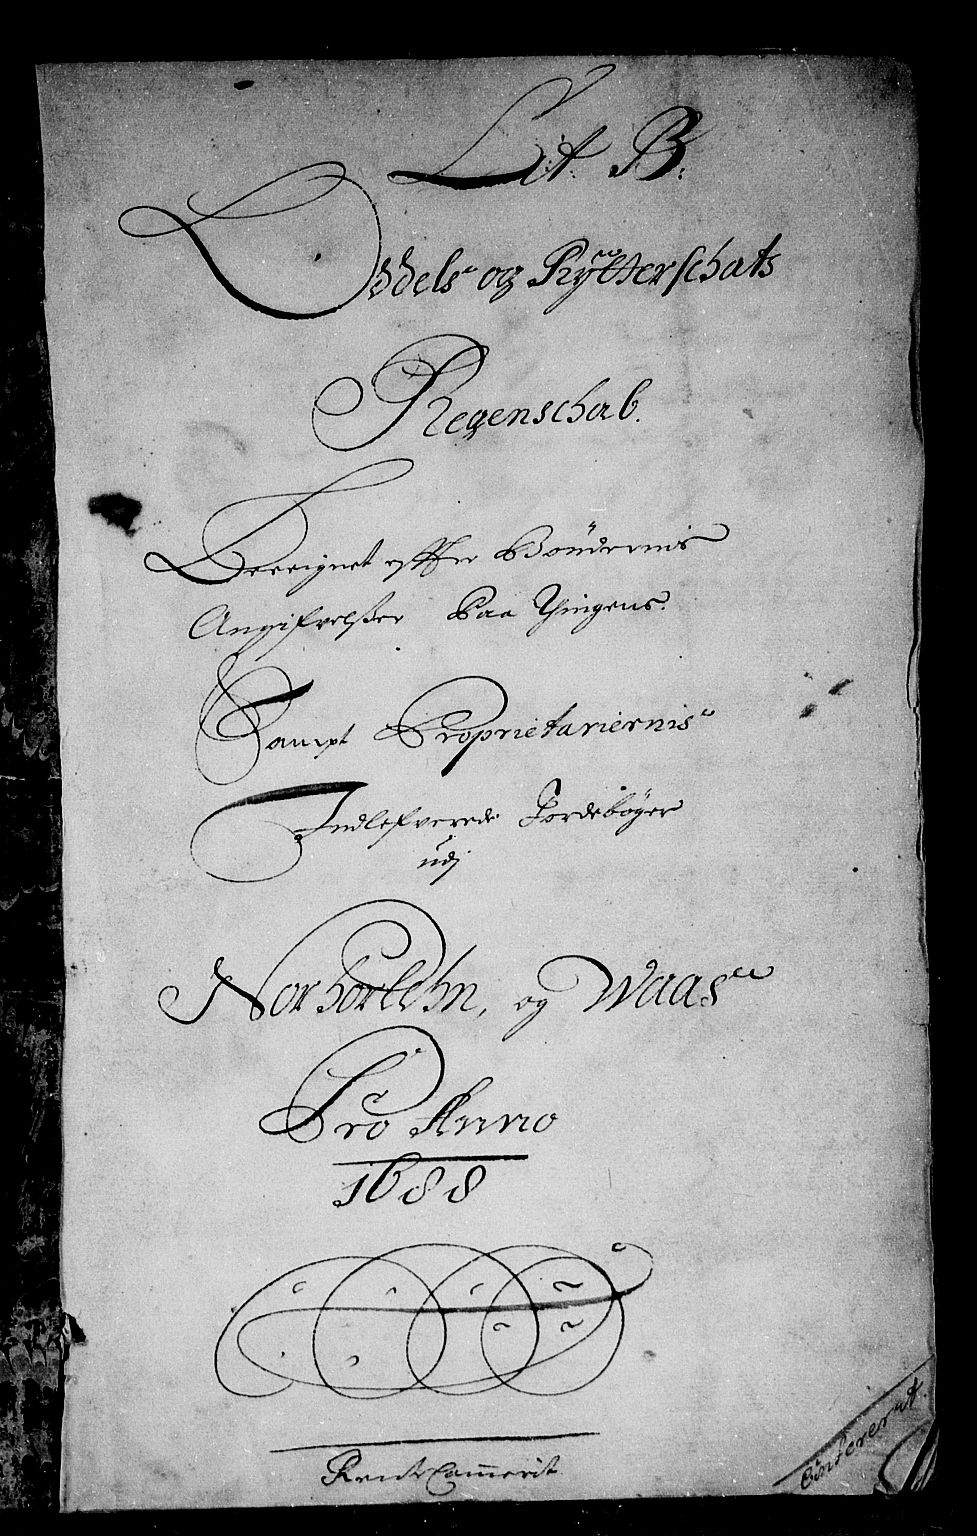 Lit. B:
Oddels og Rytterschats
Regenschab.
Bereignet effter Bøndernis
Angifvelßer Paa Thingene.
Sampt Proprietariernis
Indlefverede Jordebøger
udj
Norhorlehn, og Waas
Pro Anno
1688
RenteCammerit